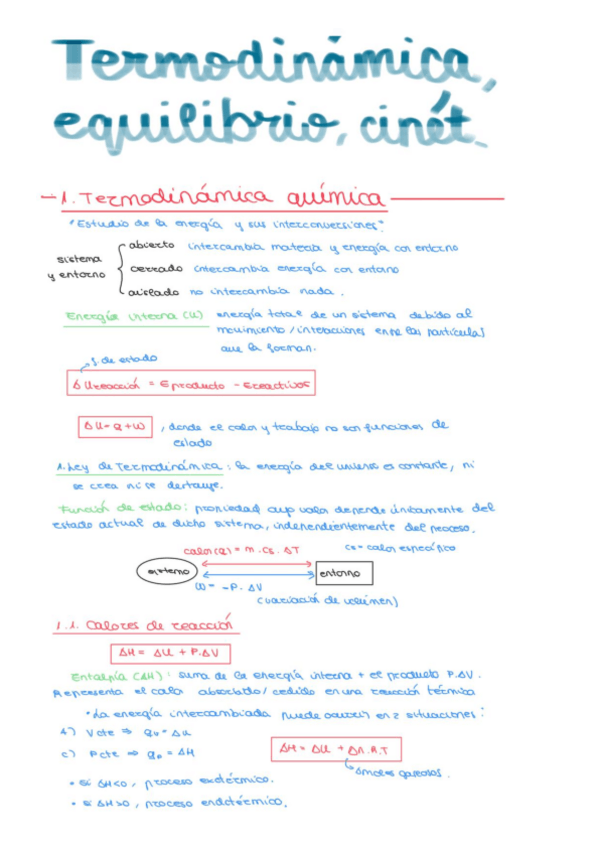 Termodinámica,
equilibrio, cinét.
1. Termodinámica química
"Estudio de la energía y sus interconversiones".
sistema y entorno
abierto intercambia materia y energía con entorno
cerrado intercambia energía con entorno
aislado no intercambia nada.
Energía interna (U) energía total de un sistema debido al
movimiento/interacciones entre las partículas
que la forman.
f. de estado
Δ Ureacción = Eproducto - Ereactivos
ΔU = Q + W, donde el calor y trabajo no son funciones de
estado
1. Ley de Termodinámica: la energía del universo es constante, ni
se crea ni se destruye.
Función de estado: propiedad cuyo valor depende únicamente del
estado actual de dicho sistema, independientemente del proceso.
calor(Q) = m . Cs . ΔT
Cs = calor específico
sistema
entorno
W = -P . ΔV
(variación de volumen)
1.1. Calores de reacción
ΔH = ΔU + P.ΔV
Entalpía (ΔH): suma de la energía interna + el producto P.ΔV.
Representa el calor absorbido/cedido en una reacción térmica
• La energía intercambiada puede ocurrir en 2 situaciones:
V cte ⇒ qv = ΔU
c) P cte ⇒ qp = ΔH
ΔH = ΔU + Δn.R.T
moles gaseosos.
• Si ΔH<0, proceso exotérmico.
• Si ΔH>0, proceso endotérmico.